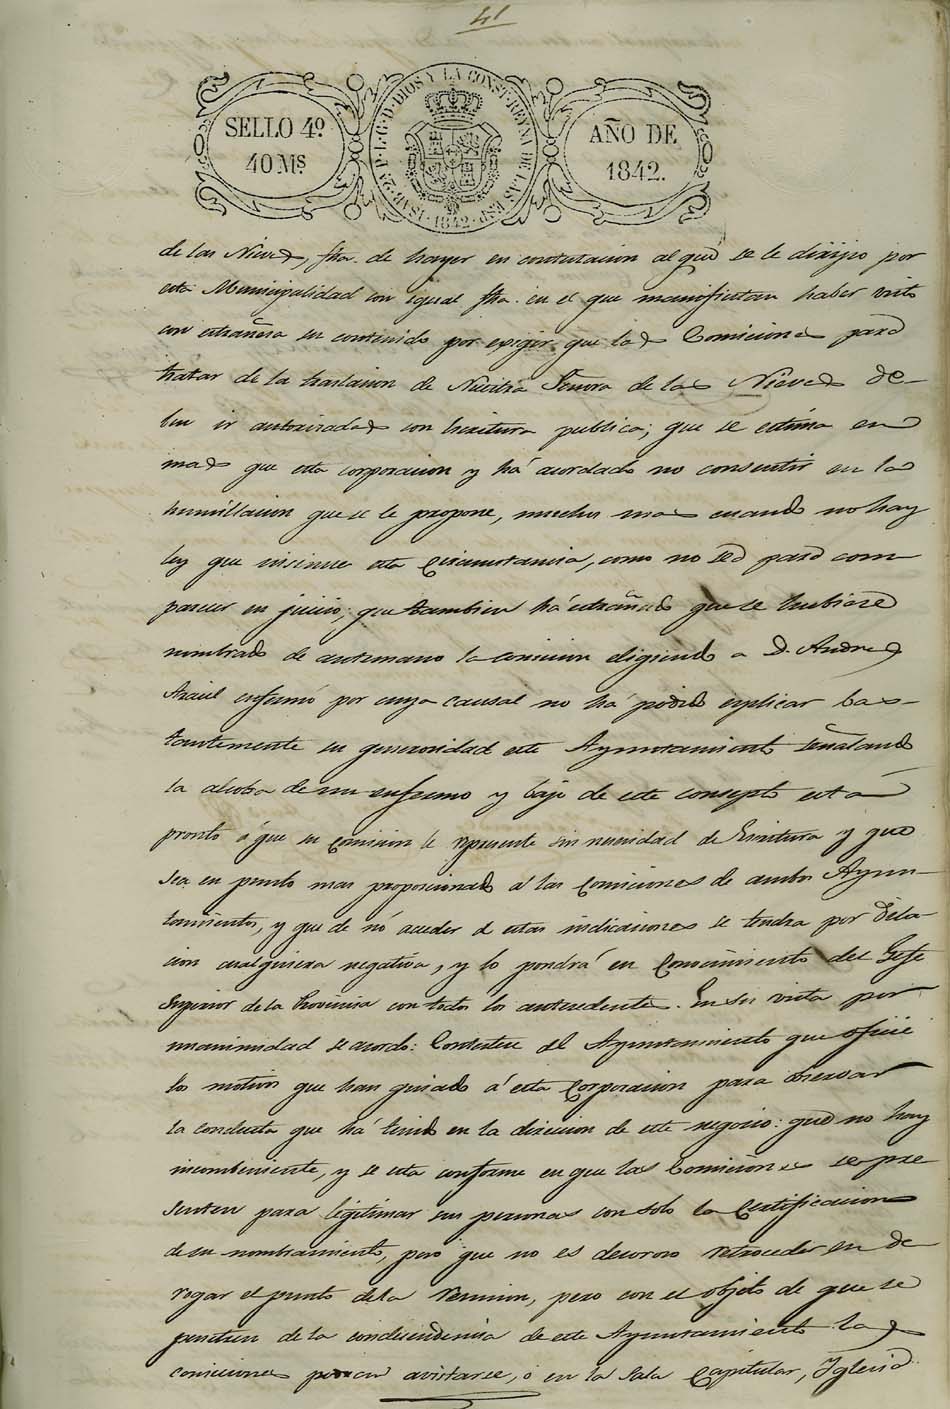 41
SELLO 4º
40 Ms.
ISAB. 2ª P. L. G. D. DIOS Y LA CONST. REYNA DE LAS ESP. 1842
AÑO DE
1842.
de las Nieves, fha. de hayer en contestacion al que se le dirijio por
esta Municipalidad con igual fha. en el que manifiestan haber visto
con estrañesa su contenido por exigir que las Comiciones para
tratar de la traslacion de Nuestra Señora de las Nieves de-
ben ir autorisadas con Escritura publica; que se estima en
mas que esta corporacion y há acordado no consentir en la
humillacion que se le propone, muchos mas cuando no hay
ley que insinue esta Circunstancia, como no sea para com-
parecer en juicio; que tambien há estrañado que se hubiese
nombrado de antemano la comicion eligiendo a D. Andres
enfermo por cuya causal no há podido esplicar bas-
tantemente su generosidad este Ayuntamiento señalando
la alcoba de un enfermo y bajo de este consepto está
pronto á que su Comicion se represente sin necesidad de Escritura y que
sea en punto mas proporcionado á las Comiciones de ambos Ayun-
tamientos, y que de nó acceder á estas indicaciones se tendra por dela-
cion cualquiera negativa, y lo pondrá en Conocimiento del Gefe
Superior de la Provincia con todos los antecedentes. En su vista por
unanimidad se acordo: Contestese al Ayuntamiento que oficie
los motivos que han guiado á esta Corporacion para observar
la conducta que há tenido en la direccion de este negocio: que no hay
incombeniente, y se esta conforme en que las Comiciones se pre
senten para legitimar sus personas con solo la Certificacion
de su nombramiento, pero que no es decoroso retroceder en de
rogar el punto de la reunion, pero con el objeto de que se
penetren de la condesendencia de este Ayuntamiento las
comiciones podran avistarse, ó en la Sala Capitular, Iglesia